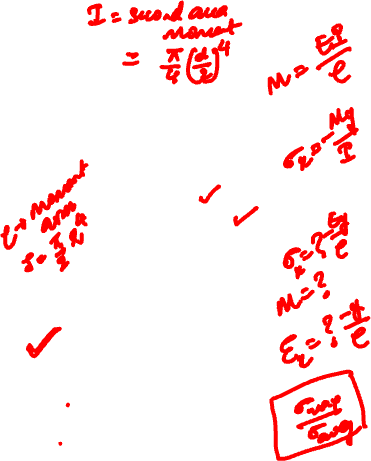 I = second area
moment
= π/4 (d/2)^4
M = EI/ρ
σx = -My/I
moment
arm
J = π/2 R^4
σx = ? Ey/ρ
M = ?
εx = ? -y/ρ
σmax/σavg